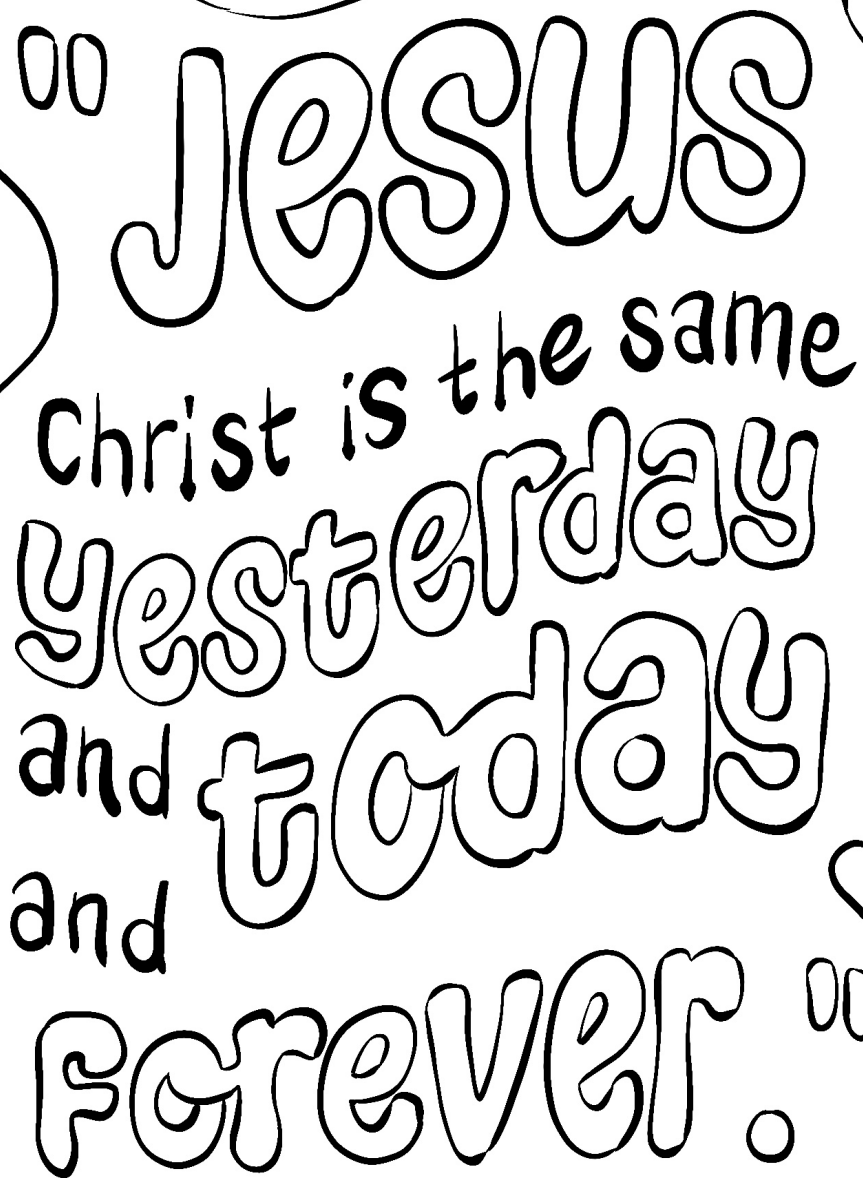 "Jesus
Christ is the same
yesterday
and today
and
Forever."